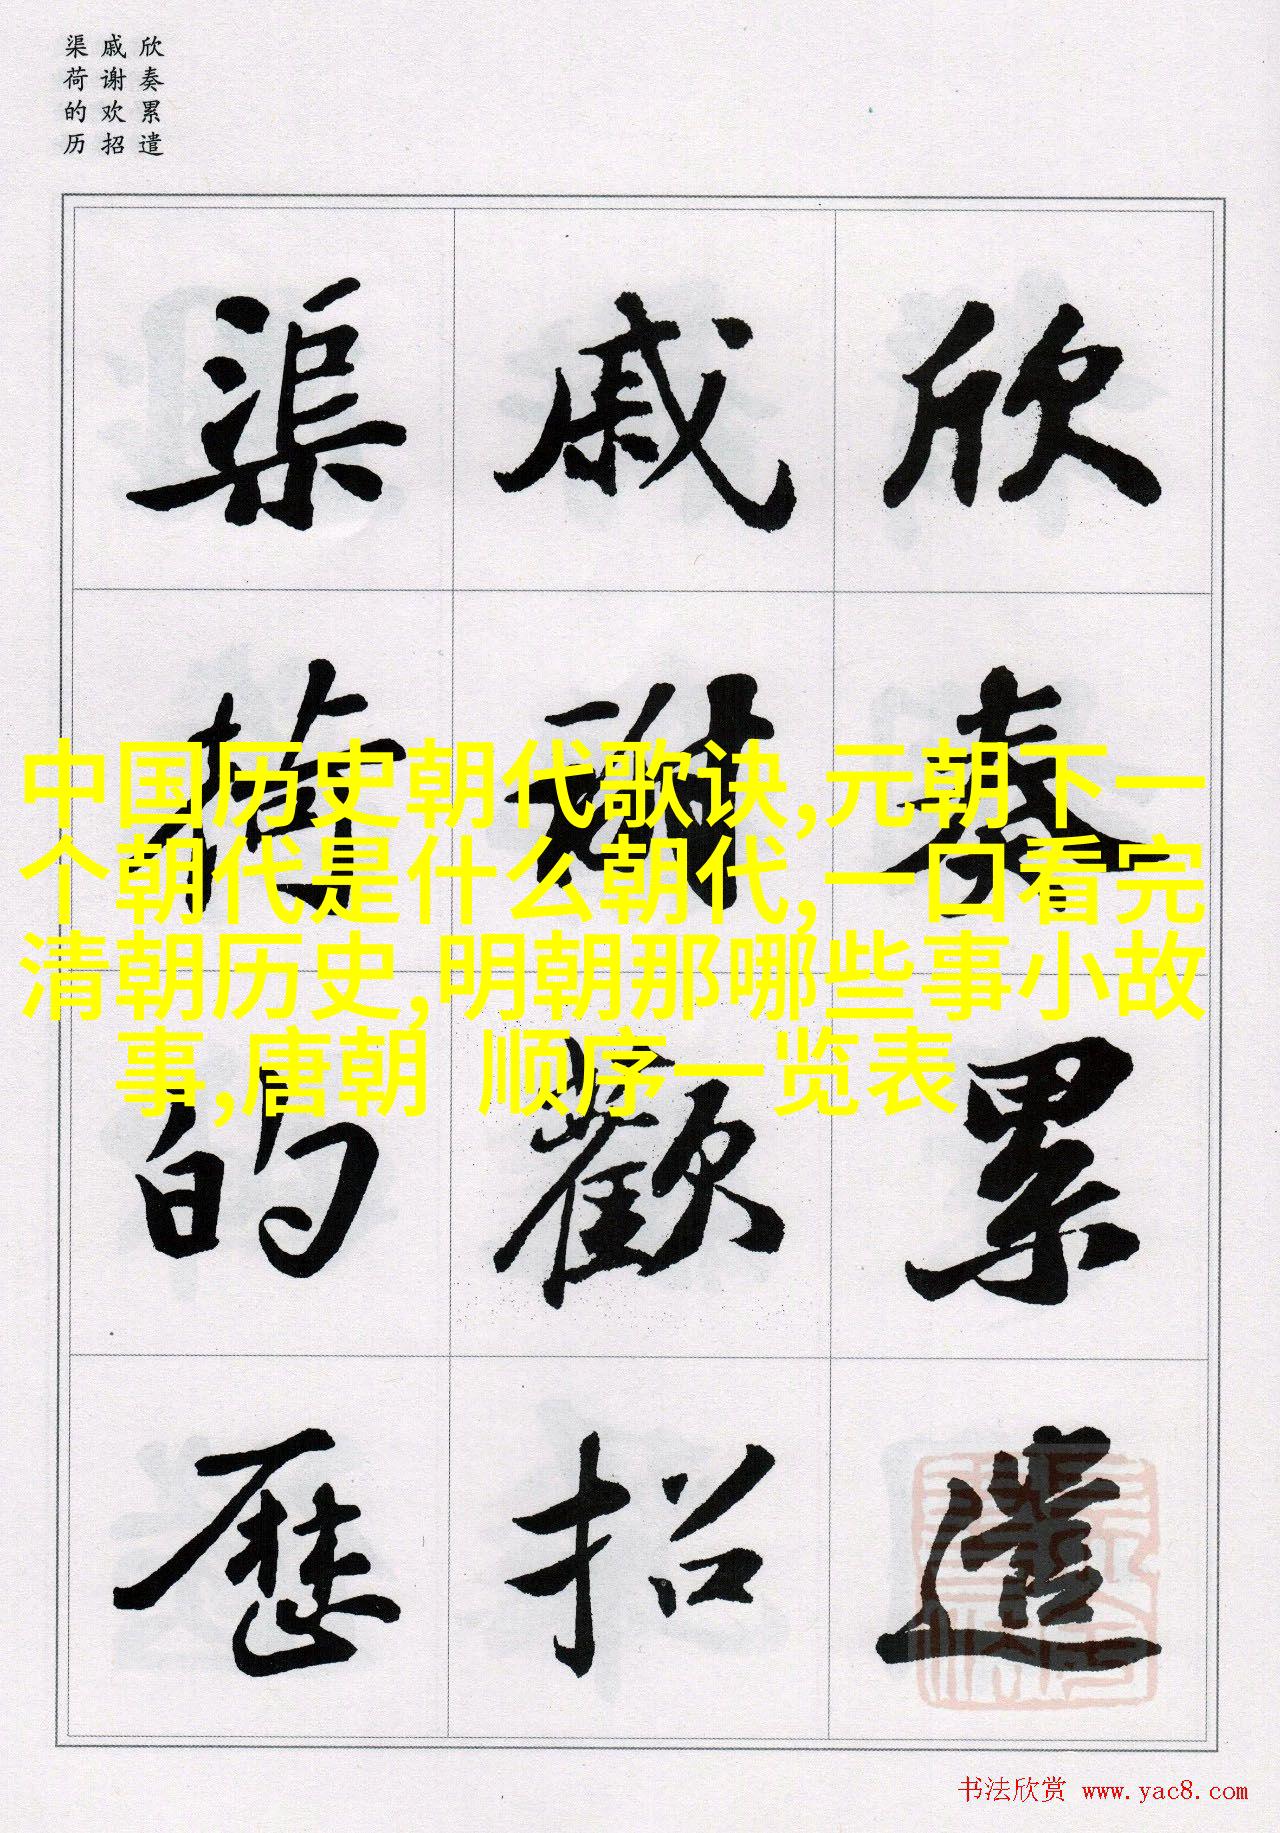 欣奏累遣
戚谢欢招
渠荷的历
欣奏累遣
戚谢歡招
渠荷的歷
中国历史朝代歌诀,元朝下一
个朝代是什么朝代,一口看完
清朝历史,明朝那哪些事小故
事,唐朝 顺序一览表
书法欣赏 www.yac8.com